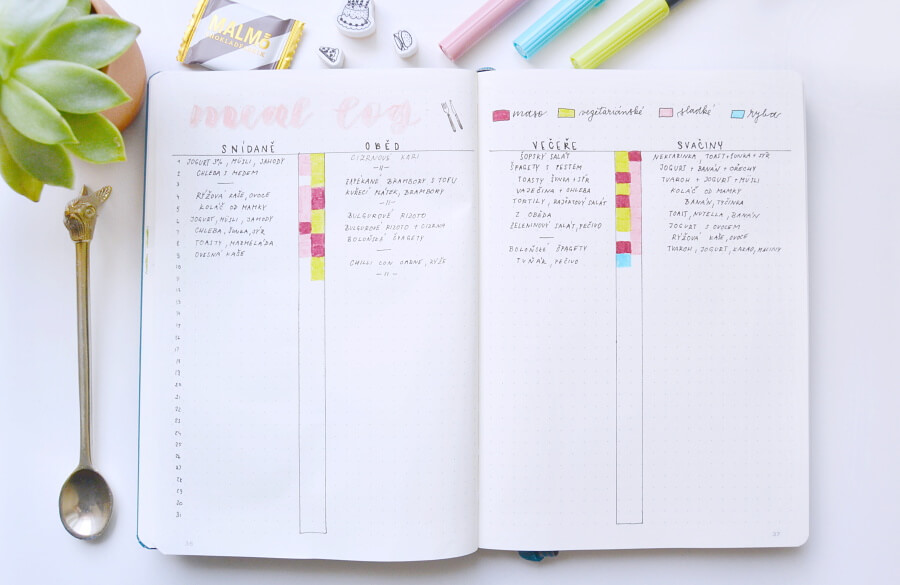 MALMÖ
meal log
SNÍDANĚ
1 JOGURT 3%, MÜSLI, JAHODY
2 CHLEBA S MEDEM
3 —
4 RÝŽOVÁ KAŠE, OVOCE
5 KOLÁČ OD MAMKY
6 JOGURT, MÜSLI, JAHODY
7 CHLEBA, ŠUNKA, SÝR
8 TOASTY, MARMELÁDA
9 OVESNÁ KAŠE
10
11
12
13
14
15
16
17
18
19
20
21
22
23
24
25
26
27
28
29
30
31
OBĚD
CIZRNOVÉ KARI
—||—
BRAMBORY S TOFU
KUŘECÍ PLÁTEK, BRAMBORY
—||—
BULGUROVÉ RIZOTO
BULGUROVÉ RIZOTO + CIZRNA
BOLOŇSKÉ ŠPAGETY
—
CHILLI CON CARNE, RÝŽE
—||—
maso vegetariánské sladké ryba
VEČEŘE
ŠOPSKÝ SALÁT
ŠPAGETY S PESTEM
TOASTY ŠUNKA + SÝR
VAJEČINA + CHLEBA
TORTILLY, RAJČATOVÝ SALÁT
Z OBĚDA
ZELENINOVÝ SALÁT, PEČIVO
—
BOLOŇSKÉ ŠPAGETY
TUŇÁK, PEČIVO
SVAČINY
NEKTARINKA, TOAST + ŠUNKA + SÝR
JOGURT + BANÁN + OŘECHY
TVAROH + JOGURT + MÜSLI
KOLÁČ OD MAMKY
BANÁN, TYČINKA
TOAST, NUTELLA, BANÁN
JOGURT S OVOCEM
RÝŽOVÁ KAŠE, OVOCE
TVAROH, JOGURT, KAKAO, MALINY